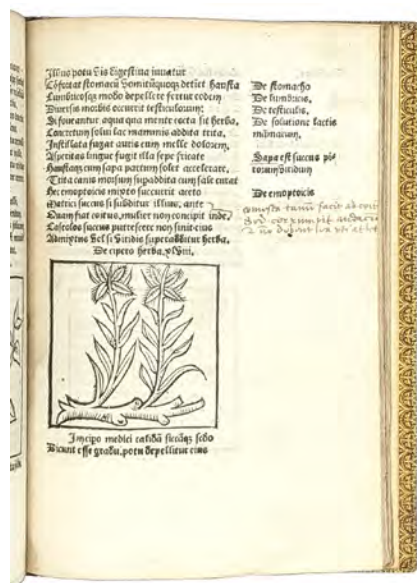 Illius potu vis digestiua iuuatur
Cōfortat stomacū vomitūquoqʒ detiet hausta
Lumbricosqʒ modo depellere fertur eodem
Diuersis morbis occurrit testiculorum:
Si foueantur aqua qua mente cocta sit herba.
Concretum solui lac mammis addita trita.
Instillata fugat auris cum melle dolorem.
Asperitas lingue fugit illa sepe fricate
Haustam cum sapa partum solet accelerare.
Trita canis morsum suꝑaddita cum sale curat
Hec emoptoicis mixto succurrit aceto
Matrici succus si subditur illius, ante
Quam fiat coitus, mulier non concipit inde.
Caseolos succus putrescere non sinit eius
Admixtus vel si viridis superabditur herba.
De cipero herba. xlviij.
De stomacho
De lumbricis.
De testiculis.
De solutione lactis
māmarum.
Sapa est succus
De emoptoicis
facit
medici calidā siccāqʒ scdo
Dicunt esse gradu, potu depellitur eius